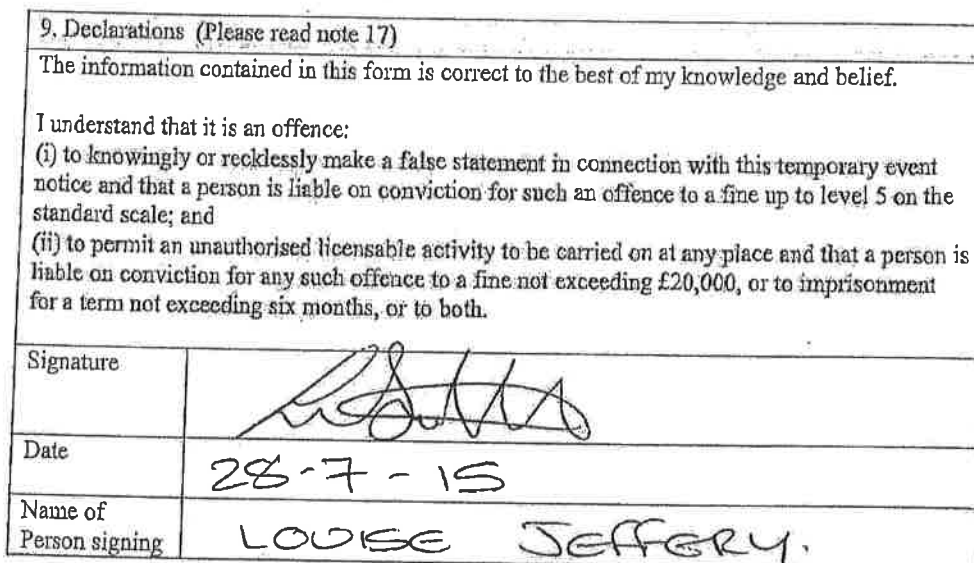 9. Declarations (Please read note 17)
The information contained in this form is correct to the best of my knowledge and belief.
I understand that it is an offence:
(i) to knowingly or recklessly make a false statement in connection with this temporary event
notice and that a person is liable on conviction for such an offence to a fine up to level 5 on the
standard scale; and
(ii) to permit an unauthorised licensable activity to be carried on at any place and that a person is
liable on conviction for any such offence to a fine not exceeding £20,000, or to imprisonment
for a term not exceeding six months, or to both.
Signature
Date
28-7-15
Name of
Person signing
LOUISE JEFFERY.